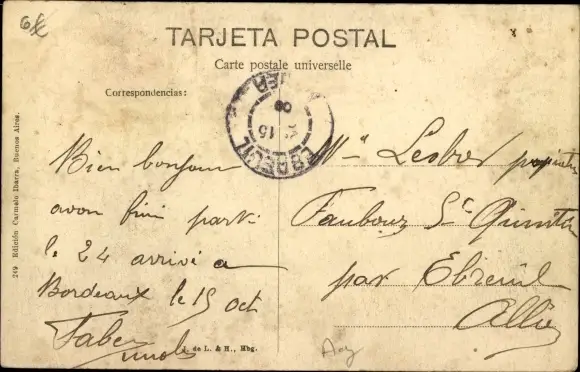 6
TARJETA POSTAL
Carte postale universelle
Correspondencias:
249 Edición Carmelo Ibarra, Buenos Aires.
EBREUIL
15
08
Bien bonjour
avon fini parti
le 24 arrivé a
Bordeaux le 15 oct
Faber
de L. & H., Hbg.
Lesbre
Faubourg St Quintin
par Ebreuil
Allier